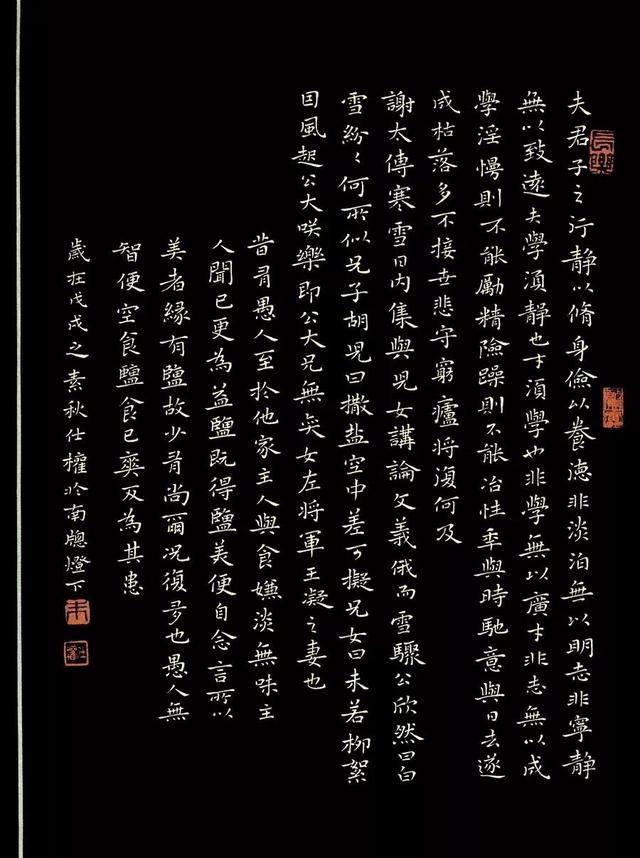 夫君子之行静以脩身儉以養德非淡泊無以明志非寧静
無以致遠夫學須静也才須學也非學無以廣才非志無以成
學淫慢則不能勵精險躁則不能冶性年與時馳意與日去遂
成枯落多不接世悲守窮廬將復何及
謝太傅寒雪日内集與兒女講論文義俄而雪驟公欣然曰白
雪紛々何所似兄子胡兒曰撒盐空中差可擬兄女曰未若柳絮
因風起公大咲樂即公大兄無奕女左將軍王凝之妻也
昔有愚人至於他家主人與食嫌淡無味主
人聞已更為益鹽既得鹽美便自念言所以
美者緣有鹽故少有尚爾况復多也愚人無
智便空食鹽食已爽反為其患
歲在戊戌之素秋仕權於南牕燈下